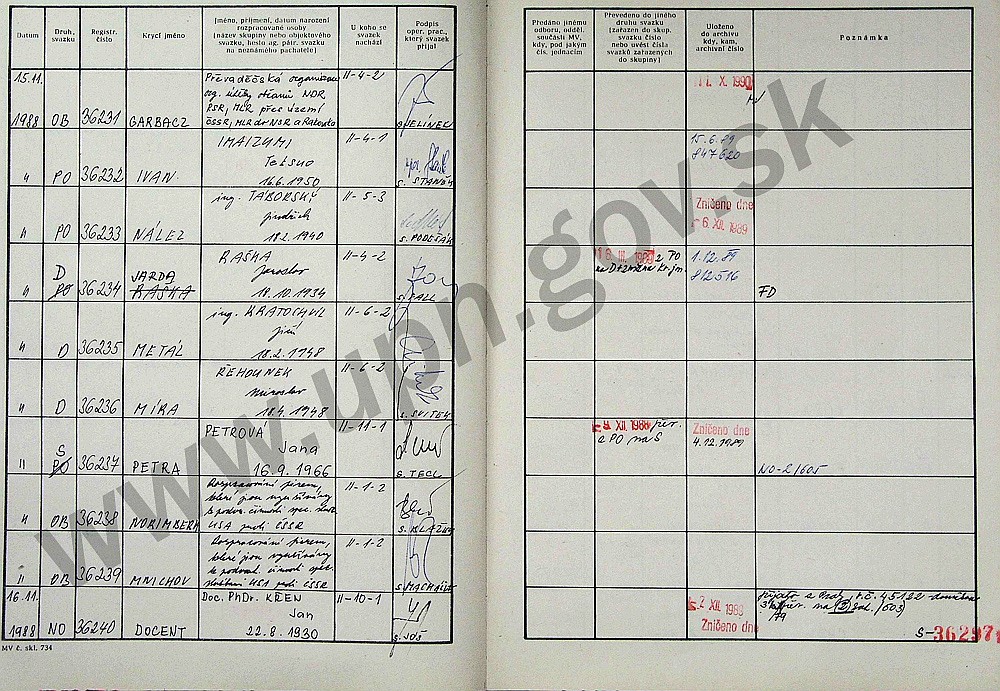 Datum
Druh, svazku
Registr. číslo
Krycí jméno
Jméno, příjmení, datum narození rozpracované osoby (název skupiny nebo objektového svazku, heslo ag. pátr. svazku na neznámého pachatele)
U koho se svazek nachází
Podpis oper. prac., který svazek přijal
Předáno jinému odboru, odděl. součásti MV, kdy, pod jakým čís. jednacím
Převedeno do jiného druhu svazku (zařazen do skup. svazku číslo nebo uvést čísla svazků zařazených do skupiny)
Uloženo do archivu kdy, kam, archivní číslo
Poznámka
15.11. 1988 OB 36231 GARBACZ
Převaděčská organizace
org. útěky občanů NDR,
PSR, MLR přes území
ČSSR, MLR do NSR a Rakouska
II-4-2
JELÍNEK
X. 1990
" PO 36232 IVAN
IMAIZUMI
Tetsuo
16.6.1950
II-4-1
S. STANĚK
15.6.89
847620
" PO 36233 NÁLEZ
ing. TÁBORSKÝ
18.2.1940
II-5-3
S. PODEŠÁK
Zničeno dne
6. XII. 1989
" D PO 36234 JARDA RAŠKA
RAŠKA
Jaroslav
18.10.1934
II-4-2
z PO
na D + změna kr. jm.
1.12.89
812516
FD
" D 36235 METÁL
ing. KRATOCHVÍL
Jiří
18.2.1948
II-6-2
" D 36236 MÍRA
ŘEHOUNEK
Miroslav
18.4.1948
II-6-2
S. SVITEK
" S PO 36237 PETRA
PETROVÁ
Jana
16.9.1966
II-11-1
S. TECL
XII. 1988 pér.
z PO na S
Zničeno dne
4.12.1989
NO-2/605
" OB 36238 NORIMBERK
Rozpracování firem,
které jsou využívány
k podvr. činnosti spec. služ.
USA proti ČSSR
II-1-2
S. BLAŽEK
" OB 36239 MNICHOV
Rozpracování firem,
které jsou využívány
k podvrat. činnosti spec.
službami USA proti ČSSR
II-1-2
16.11. 1988 NO 36240 DOCENT
Doc. PhDr. KŘEN
Jan
22.8.1930
II-10-1
S. JOŠ
XII 1989
Zničeno dne
S-36297
MV č. skl. 734
www.upn.gov.sk